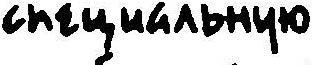 специальную